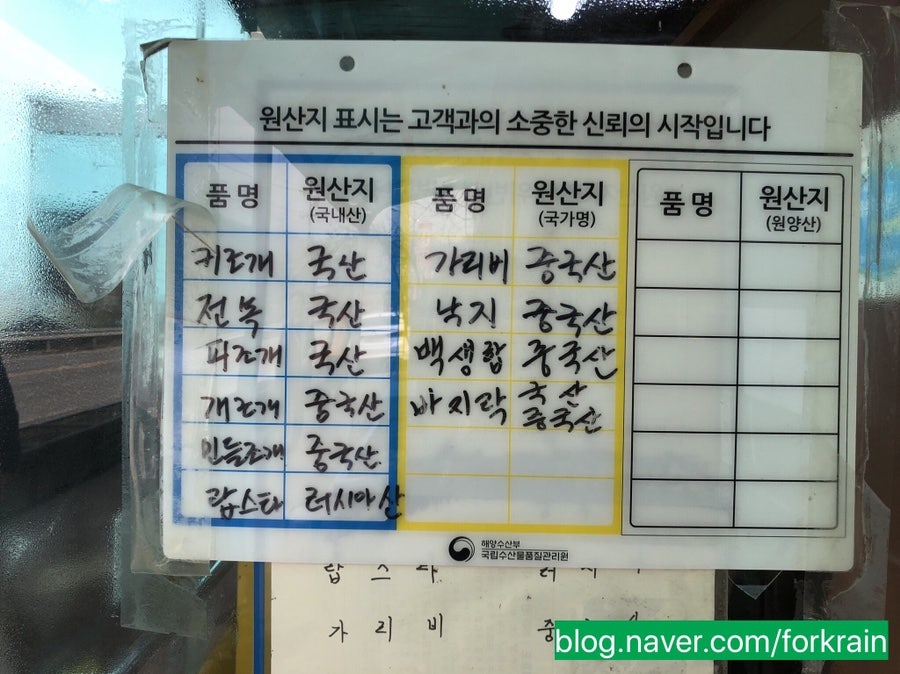 원산지 표시는 고객과의 소중한 신뢰의 시작입니다
품명 원산지 품명 원산지 품명 원산지
(국내산) (국가명) (원양산)
키조개 국산 가리비 중국산
전복 국산 낙지 중국산
피조개 국산 백생합 중국산
개조개 중국산 바지락 국산
중국산
민들조개 중국산
랍스타 러시아산
해양수산부
국립수산물품질관리원
랍스타
가리비 중
blog.naver.com/forkrain